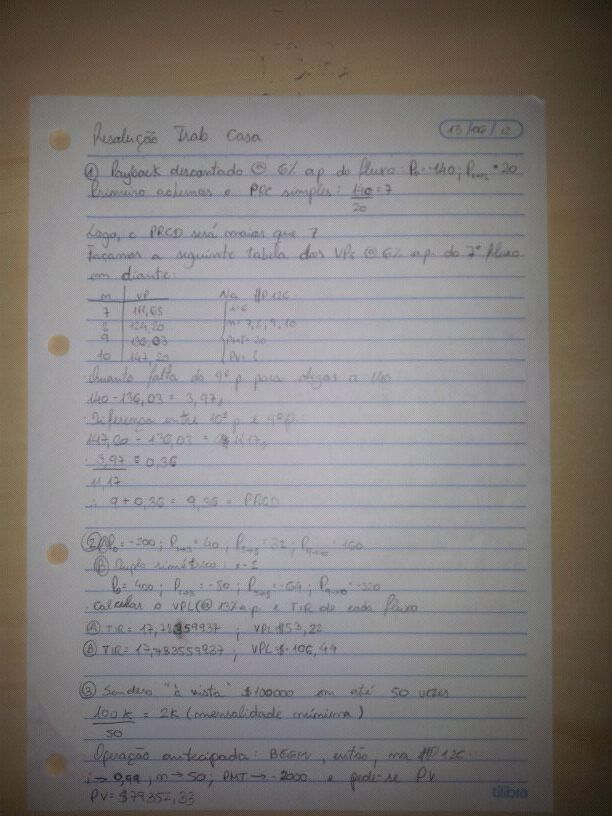 Resolução Trab Casa
13/02/12
① Payback descontado @ 6% a.p do fluxo: P₀=-140; =20
Primeiro achemos o PBC simples: 140/20 = 7
Logo, o PBCD será maior que 7
Façamos a seguinte tabela das VPs @ 6% a.p. do 7º fluxo
em diante:
n VP Na HP12C
7 111,65 i=6
8 124,20 n=7,8,9,10
9 136,03 PMT=20
10 147,20 PV=?
Quanto falta do 9º p para chegar a 140:
140-136,03 = 3,97
Diferença entre 10º p e 9º p:
147,20 - 136,03 = 11,17
3,97/11,17 = 0,36
∴ 9 + 0,36 = 9,36 = PBCD
② Ⓐ
Ⓑ Duplo simétrico: x-2
P₀= 400;
Calcular o VPL(@ 13% a.p. e TIR de cada fluxo
Ⓐ TIR= ; VPL $53,22
Ⓑ TIR= 17,783559937 ; VPL $-106,44
③ Sendo o "à vista" $100000 em até 50 vezes
100K/50 = 2K (mensalidade mínima)
Operação antecipada: BEGIN, então, na HP12C:
i→0,99, n→50; PMT→-2000 e pede-se PV
PV= $79352,33
tilibra